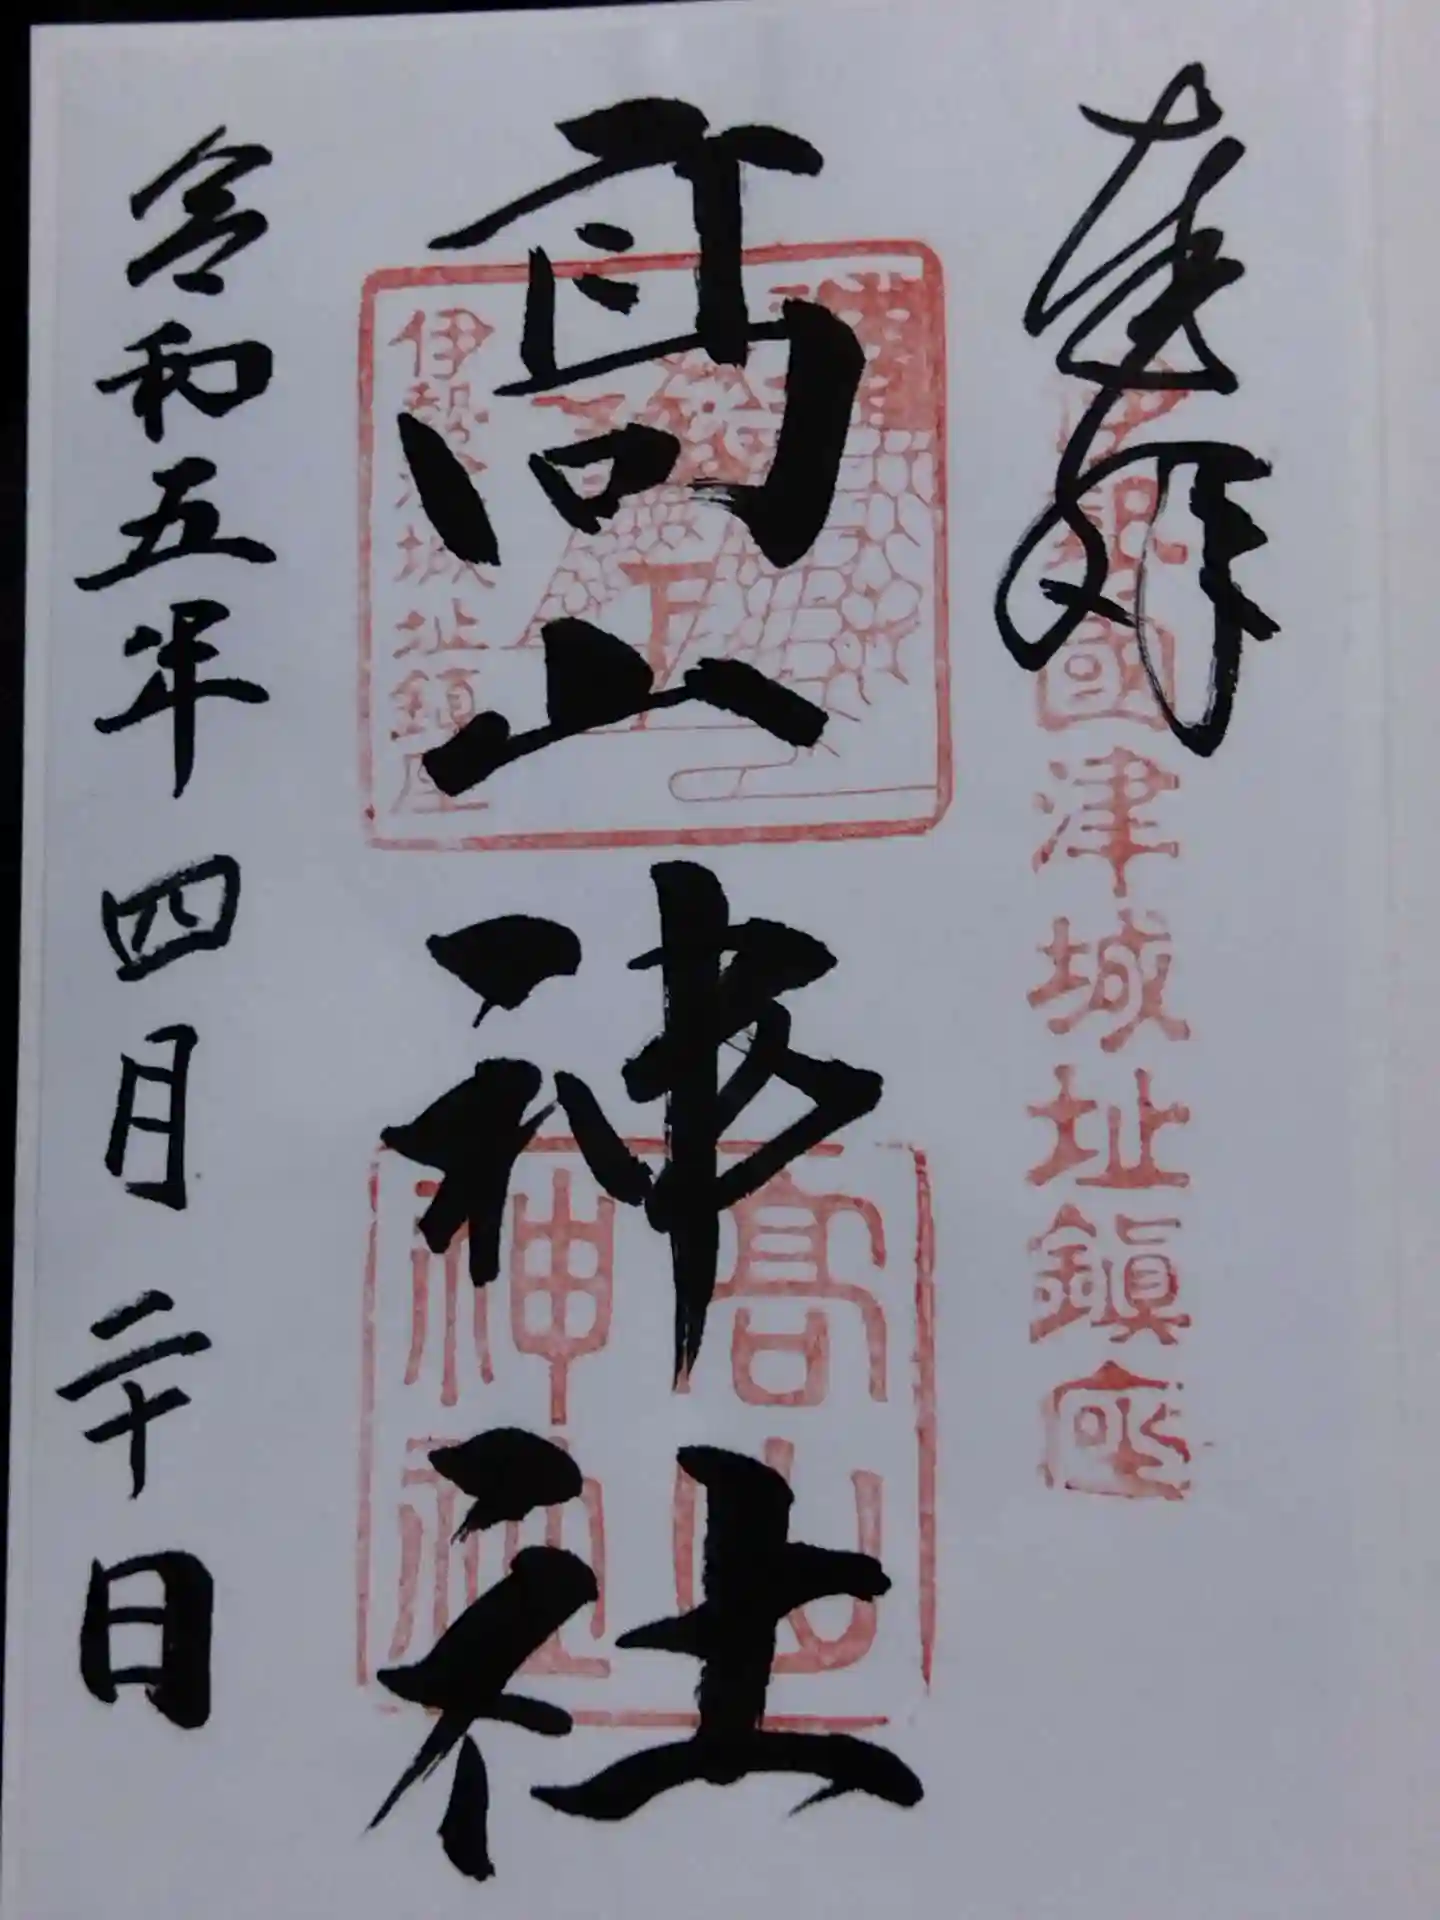 奉拝
國津城址鎮座
高山神社
伊勢津城址鎮座
高山
神社
令和五年四月二十日